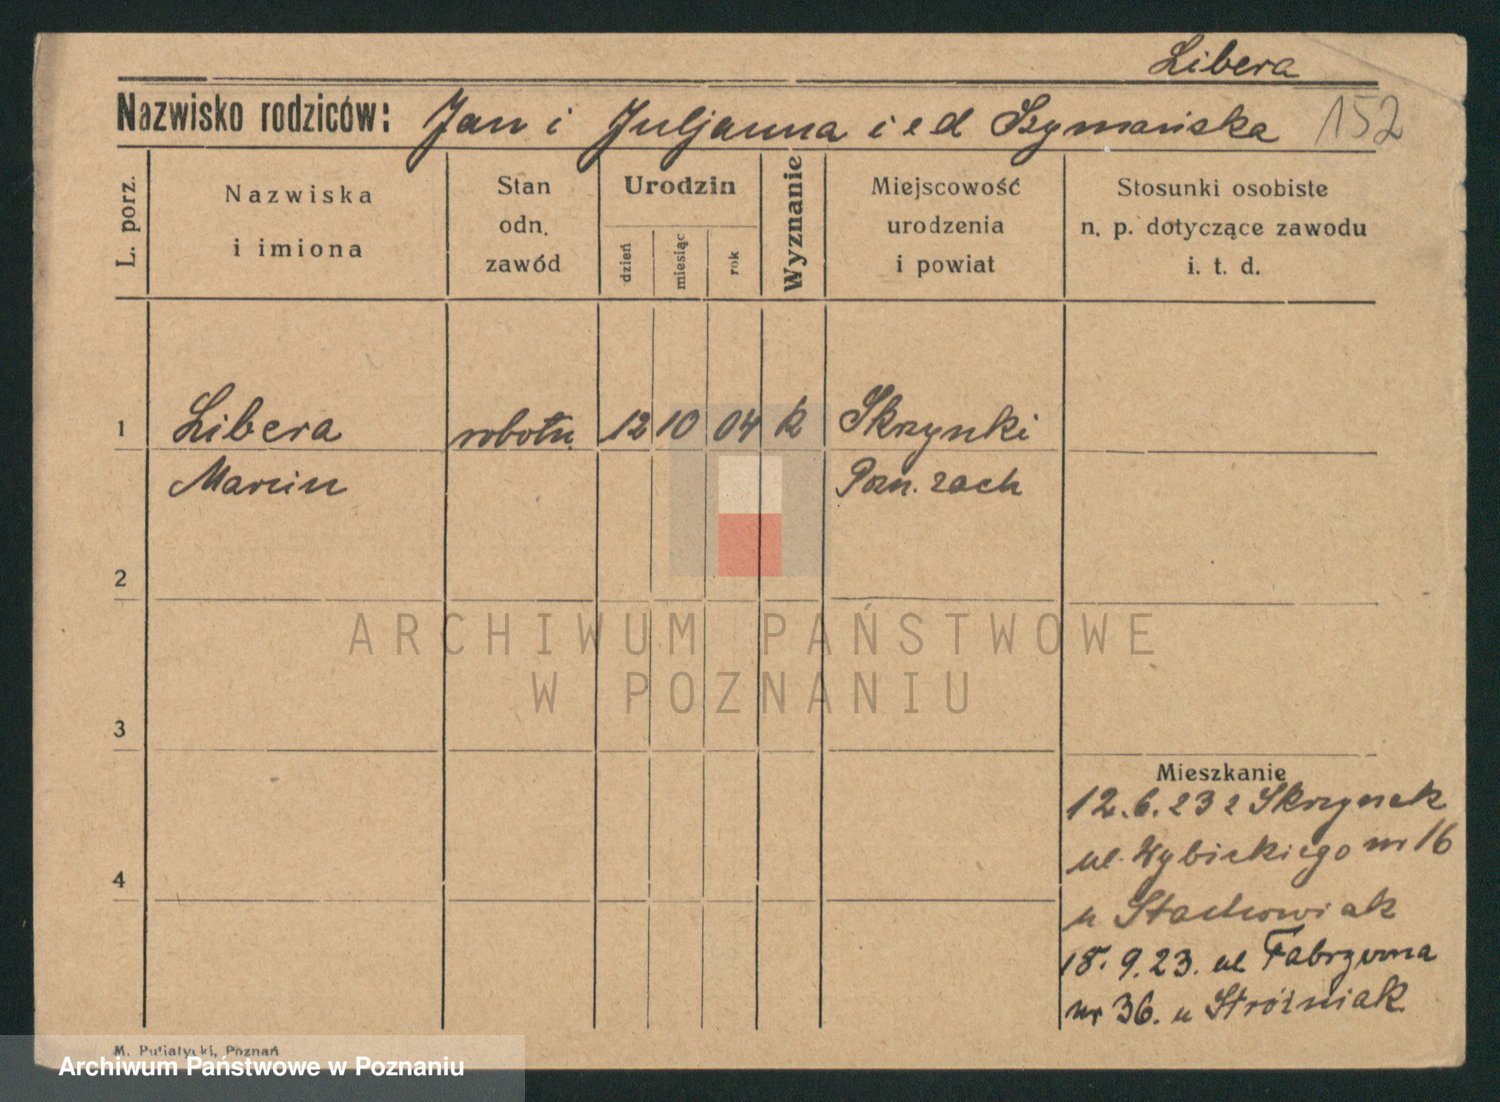 Libera
Nazwisko rodziców: Jan i Juljanna i e d Szymańska 152
L. porz.
Nazwiska
i imiona
Stan
odn.
zawód
Urodzin
dzień
miesiąc
rok
Wyznanie
Miejscowość
urodzenia
i powiat
Stosunki osobiste
n. p. dotyczące zawodu
i. t. d.
1 Libera robotn 12 10 04 k Skrzynki
Marcin Pozn. zach
2
ARCHIWUM PAŃSTWOWE
W POZNANIU
3
Mieszkanie
12.6.23 z Skrzynek
ul. Wybickiego nr 16
4
u Stachowiak
18.9.23. ul Fabryczna
nr 36. u Stróżniak
M. Putiatycki, Poznań
Archiwum Państwowe w Poznaniu